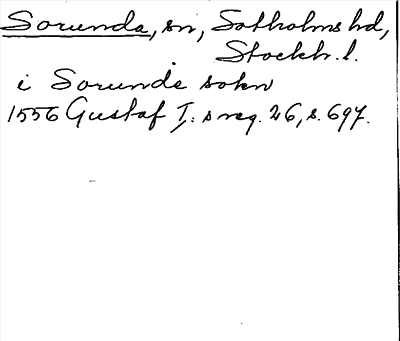 Sorunda, sn, Sotholms hd,
Stockh. l.
i Sorunde sokn
1556 Gustaf I:s reg. 26, s. 697.